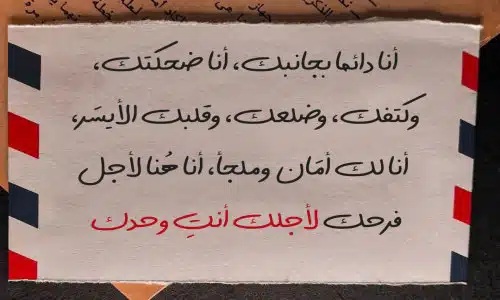 أنا دائما بجانبك، أنا ضحكتك،
وكتفك، وضلعك، وقلبك الأيسَر،
أنا لك أمَان وملجأ، أنا هُنا لأجل
فرحك لأجلك أنتِ وحدك